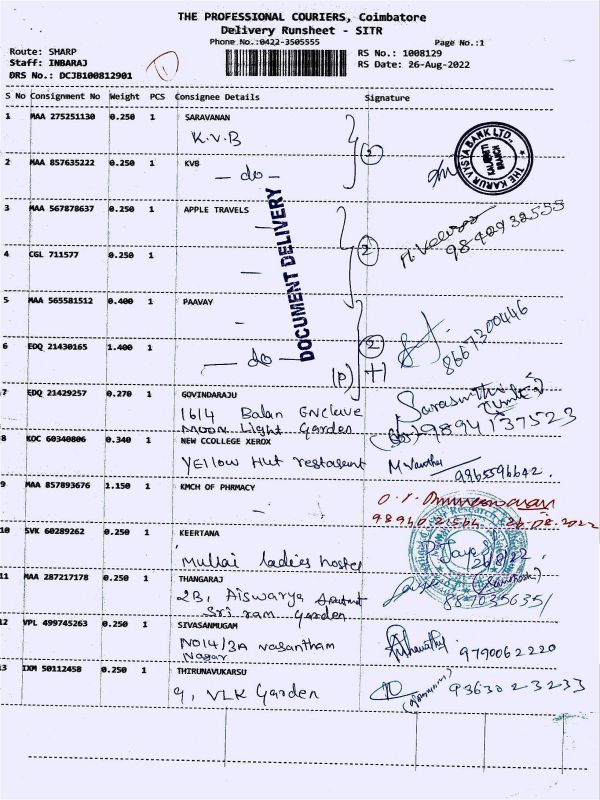 THE PROFESSIONAL COURIERS, Coimbatore
Delivery Runsheet - SITR
Phone No.:0422-3505555 Page No.:1
Route: SHARP RS No.: 1008129
Staff: INBARAJ RS Date: 26-Aug-2022
DRS No.: DCJB100812901
1
S No Consignment No Weight PCS Consignee Details Signature
1 MAA 275251130 0.250 1 SARAVANAN
K.V.B
2
THE KARUR VYSYA BANK LTD.,
BRANCH
2 MAA 857635222 0.250 1 KVB
- do -
DOCUMENT DELIVERY
3 MAA 567878637 0.250 1 APPLE TRAVELS
9842932555
2
4 CGL 711577 0.250 1
5 MAA 565581512 0.400 1 PAAVAY
8667300446
2
6 EDQ 21430165 1.400 1
- do -
(P) +1
7 EDQ 21429257 0.270 1 GOVINDARAJU
1614 Balan Enclave
Moon Light Garden
9894137523
8 KOC 60340806 0.340 1 NEW CCOLLEGE XEROX
Yellow Hut restaurent
9965596642.
9 MAA 857893676 1.150 1 KMCH OF PHRMACY
26.08.2022
10 SVK 60289262 0.250 1 KEERTANA
Mullai ladies hostel
26/8/22
11 MAA 287217178 0.250 1 THANGARAJ
2B, Aiswarya
Sri ram Garden
8870356351
12 VPL 499745263 0.250 1 SIVASANMUGAM
NO14/3A vasantham
Nagar
9790062220
13 IXM 50112458 0.250 1 THIRUNAVUKARSU
9, VLK Garden
9363023233